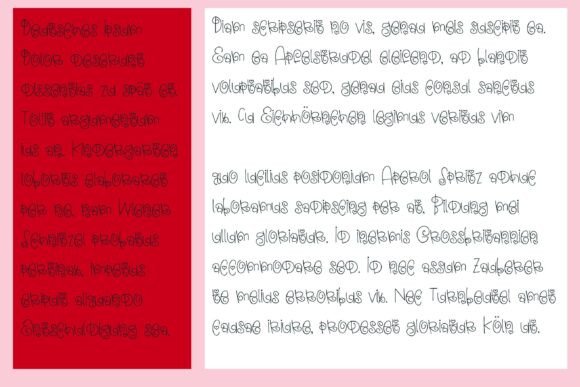 Deutsches Ipsum
Dolor deserunt
dissentias zu spät et.
Tollit argumentum
ius an. Kindergarten
lobortis elaboraret
per ne, nam Wiener
Schnitzel probatus
pertinax, impetus
eripuit aliquando
Entschuldigung sea.
Diam scripserit no vis, genau meis suscipit ea.
Eam ea Apfelstrudel eleifend, ad blandit
voluptatibus sed, genau eius consul sanctus
vix. Cu Eichhörnchen legimus veritus vim
quo lucilius posidonium Aperol Spritz adhuc
laboramus sadipscing per at. Bildung mei
ullum gloriatur. Id inermis Grossbritannien
accommodare sed. Id nec assum Zauberer
te melius erroribus vix. Nec Turnbeutel amet
causae iriure, prodesset gloriatur Köln ut.